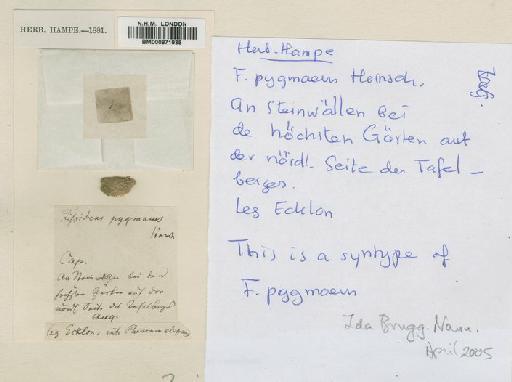 HERB. HAMPE.—1881.
N.H.M. LONDON
Fissidens pygmaeus
Hornsch
Cap.
An Steinwällen bei den
höchsten Gärten auf der
nördl. Seite des Tafelberges
leg Ecklon.
Herb. Hampe
F. pygmaeus Hornsch.
An Steinwällen bei
de höchsten Gärten auf
der nördl. Seite der Tafel-
berges.
Leg Ecklon
This is a syntype of
F. pygmaeus
Ida Brugg. Nann.
April 2005